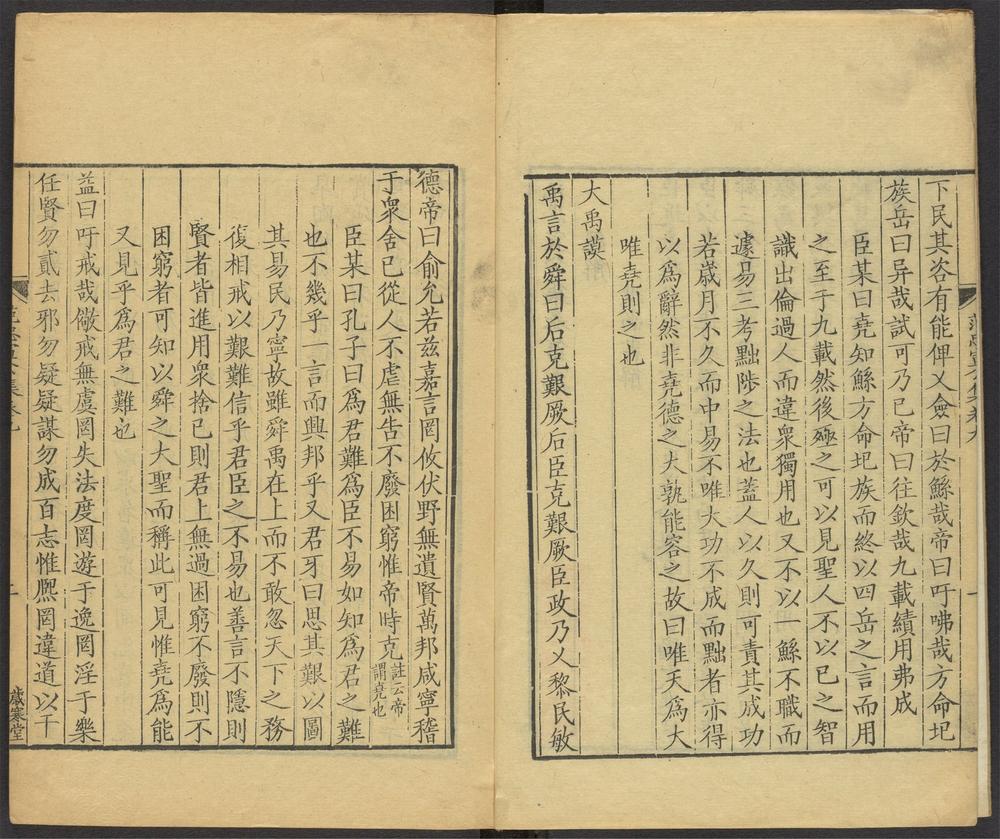 下民其咨有能俾乂僉曰於鯀哉帝曰吁咈哉方命圮
族岳曰异哉試可乃已帝曰往欽哉九載績用弗成
臣某曰堯知鯀方命圮族而終以四岳之言而用
之至于九載然後殛之可以見聖人不以已之智
識出倫過人而違衆獨用也又不以一鯀不職而
遽易三考黜陟之法也蓋人以久則可責其成功
若歲月不久而中易不唯大功不成而黜者亦得
以爲辭然非堯德之大孰能容之故曰唯天爲大
唯堯則之也
大禹謨
禹言於舜曰后克艱厥后臣克艱厥臣政乃乂黎民敏
德帝曰俞允若茲嘉言罔攸伏野無遺賢萬邦咸寧稽
于衆舍已從人不虐無告不廢困窮惟帝時克註云帝謂堯也
臣某曰孔子曰爲君難爲臣不易如知爲君之難
也不幾乎一言而興邦乎又君牙曰思其艱以圖
其易民乃寧故雖舜禹在上而不敢忽天下之務
復相戒以艱難信乎君臣之不易也善言不隱則
賢者皆進用衆捨已則君上無過困窮不廢則不
困窮者可知以舜之大聖而稱此可見惟堯爲能
又見乎爲君之難也
益曰吁戒哉儆戒無虞罔失法度罔遊于逸罔淫于樂
任賢勿貳去邪勿疑疑謀勿成百志惟熈罔違道以干
歲寒堂